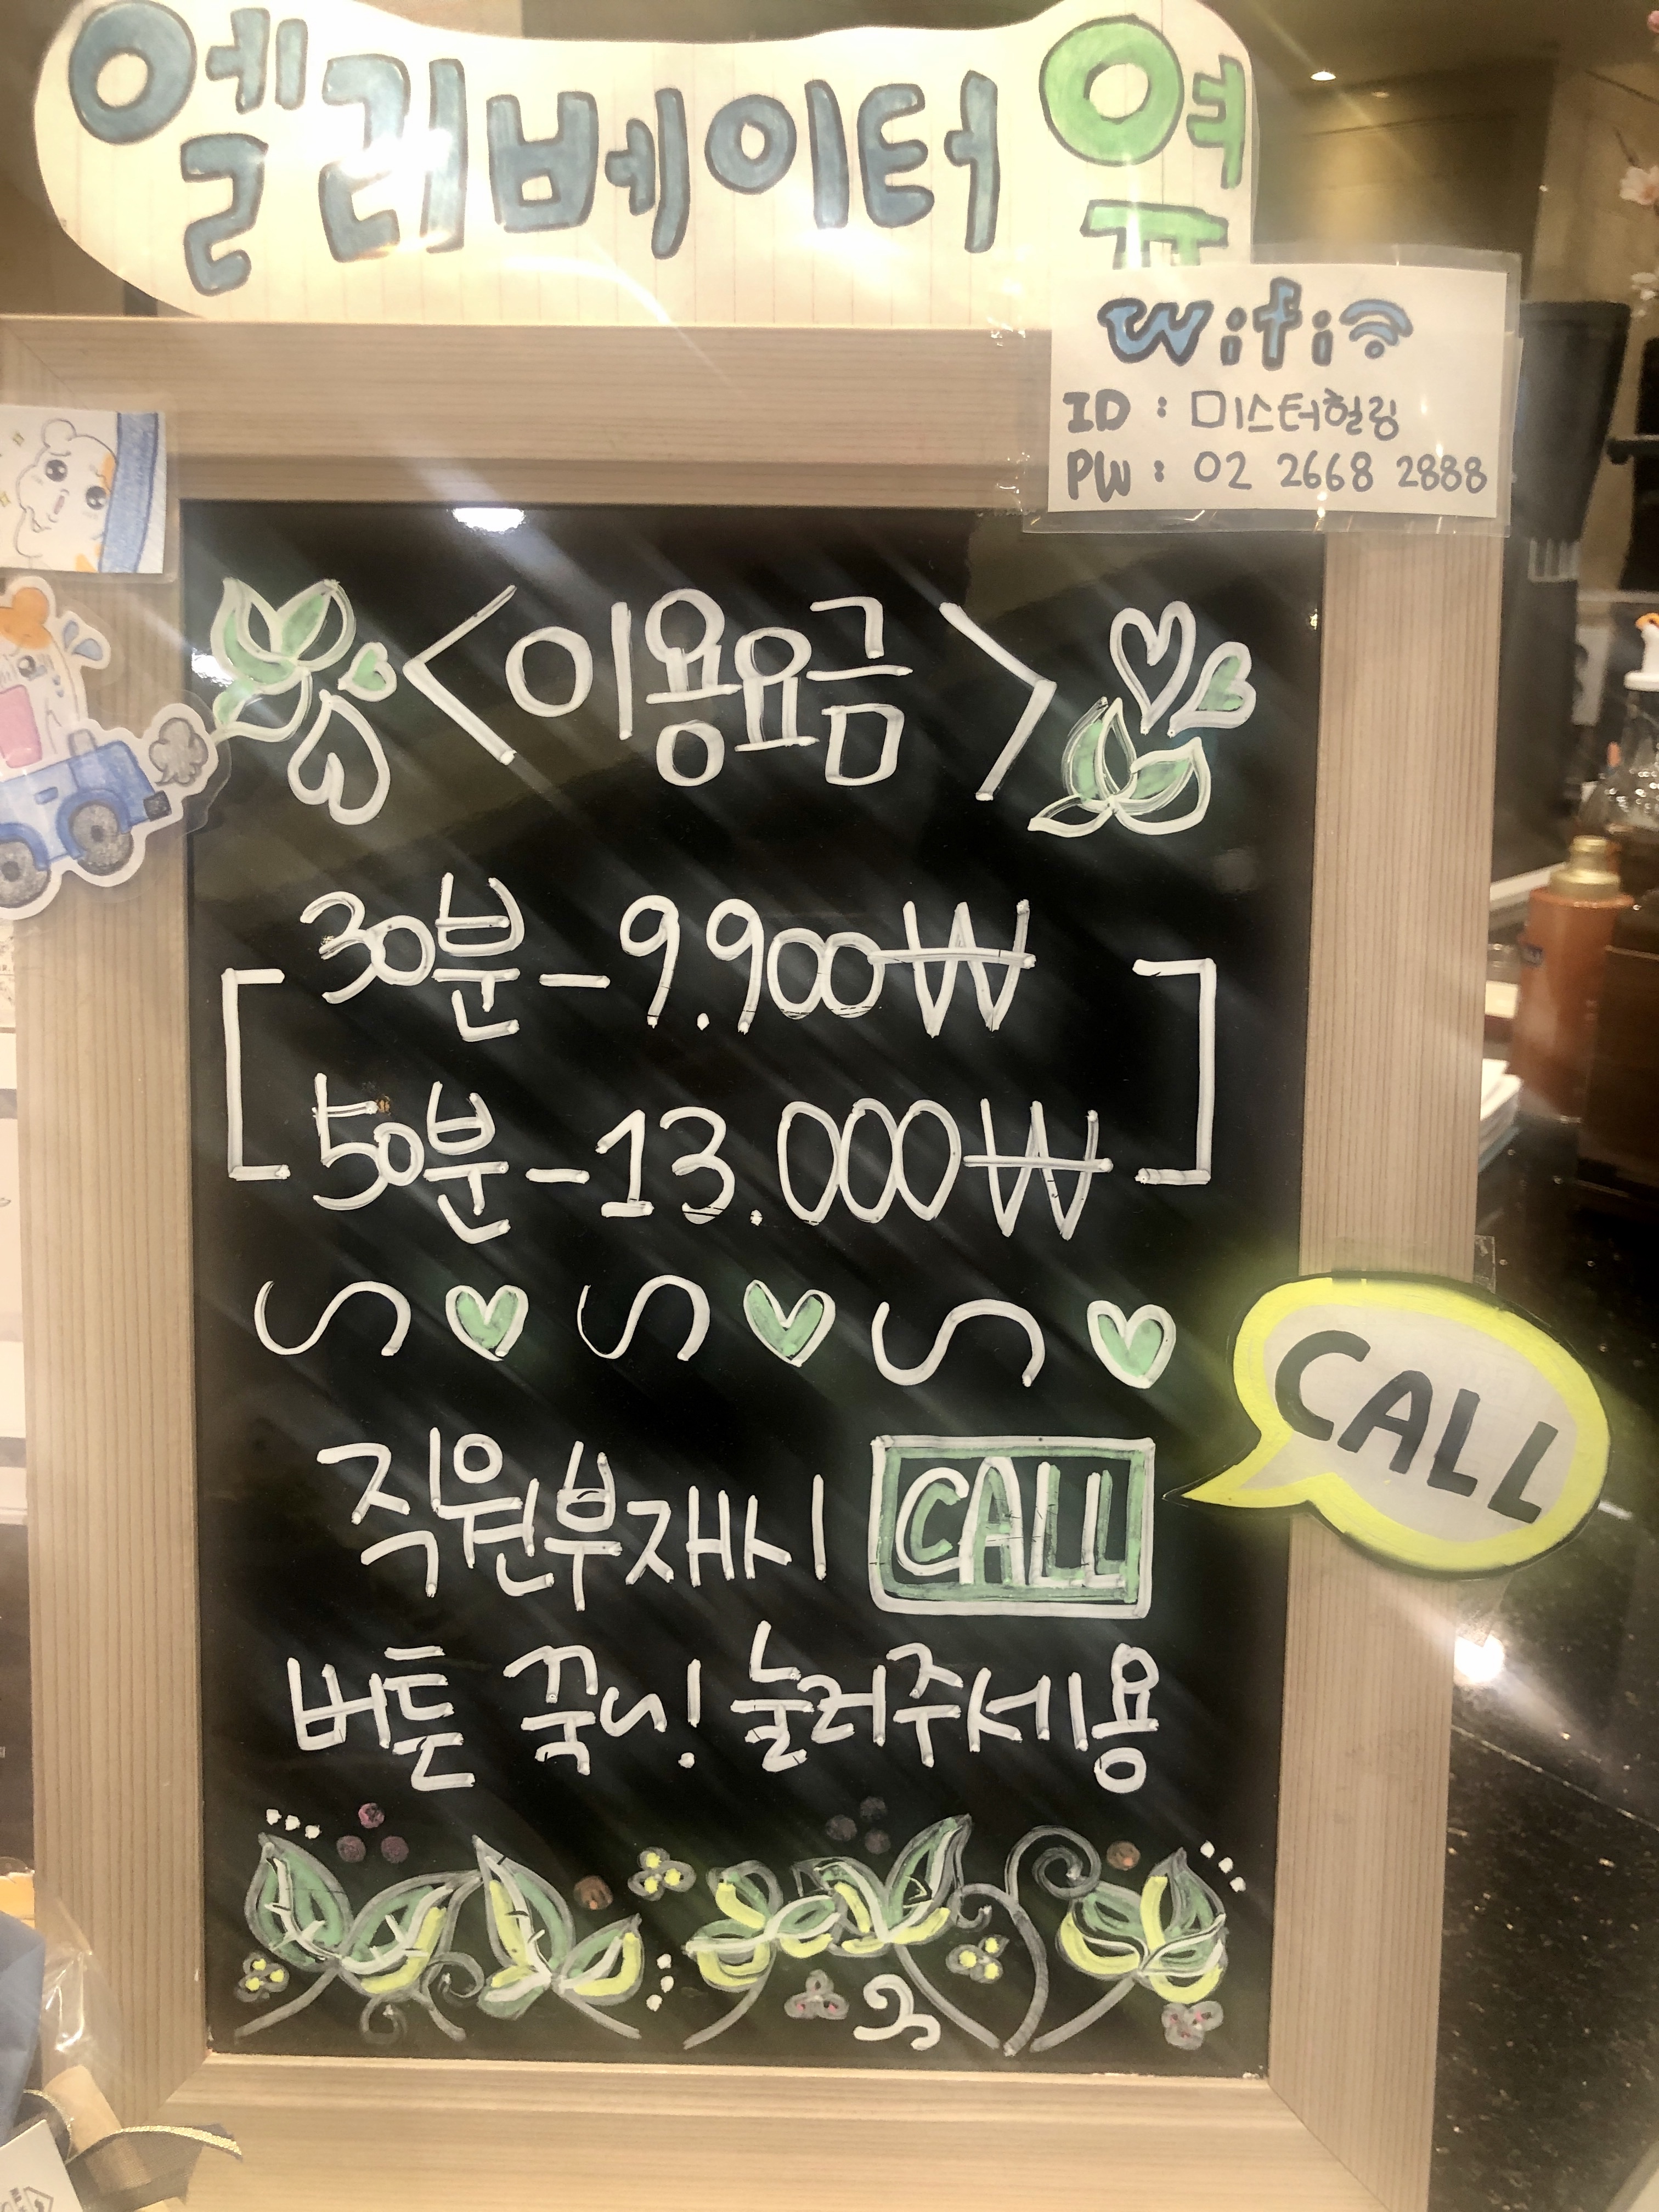 엘리베이터 옆
wifi
ID : 미스터힐링
PW : 02 2668 2888
<이용요금>
30분-9.900₩
50분-13.000₩
직원부재시 CALL
CALL
버튼 꾹~! 눌러주세용